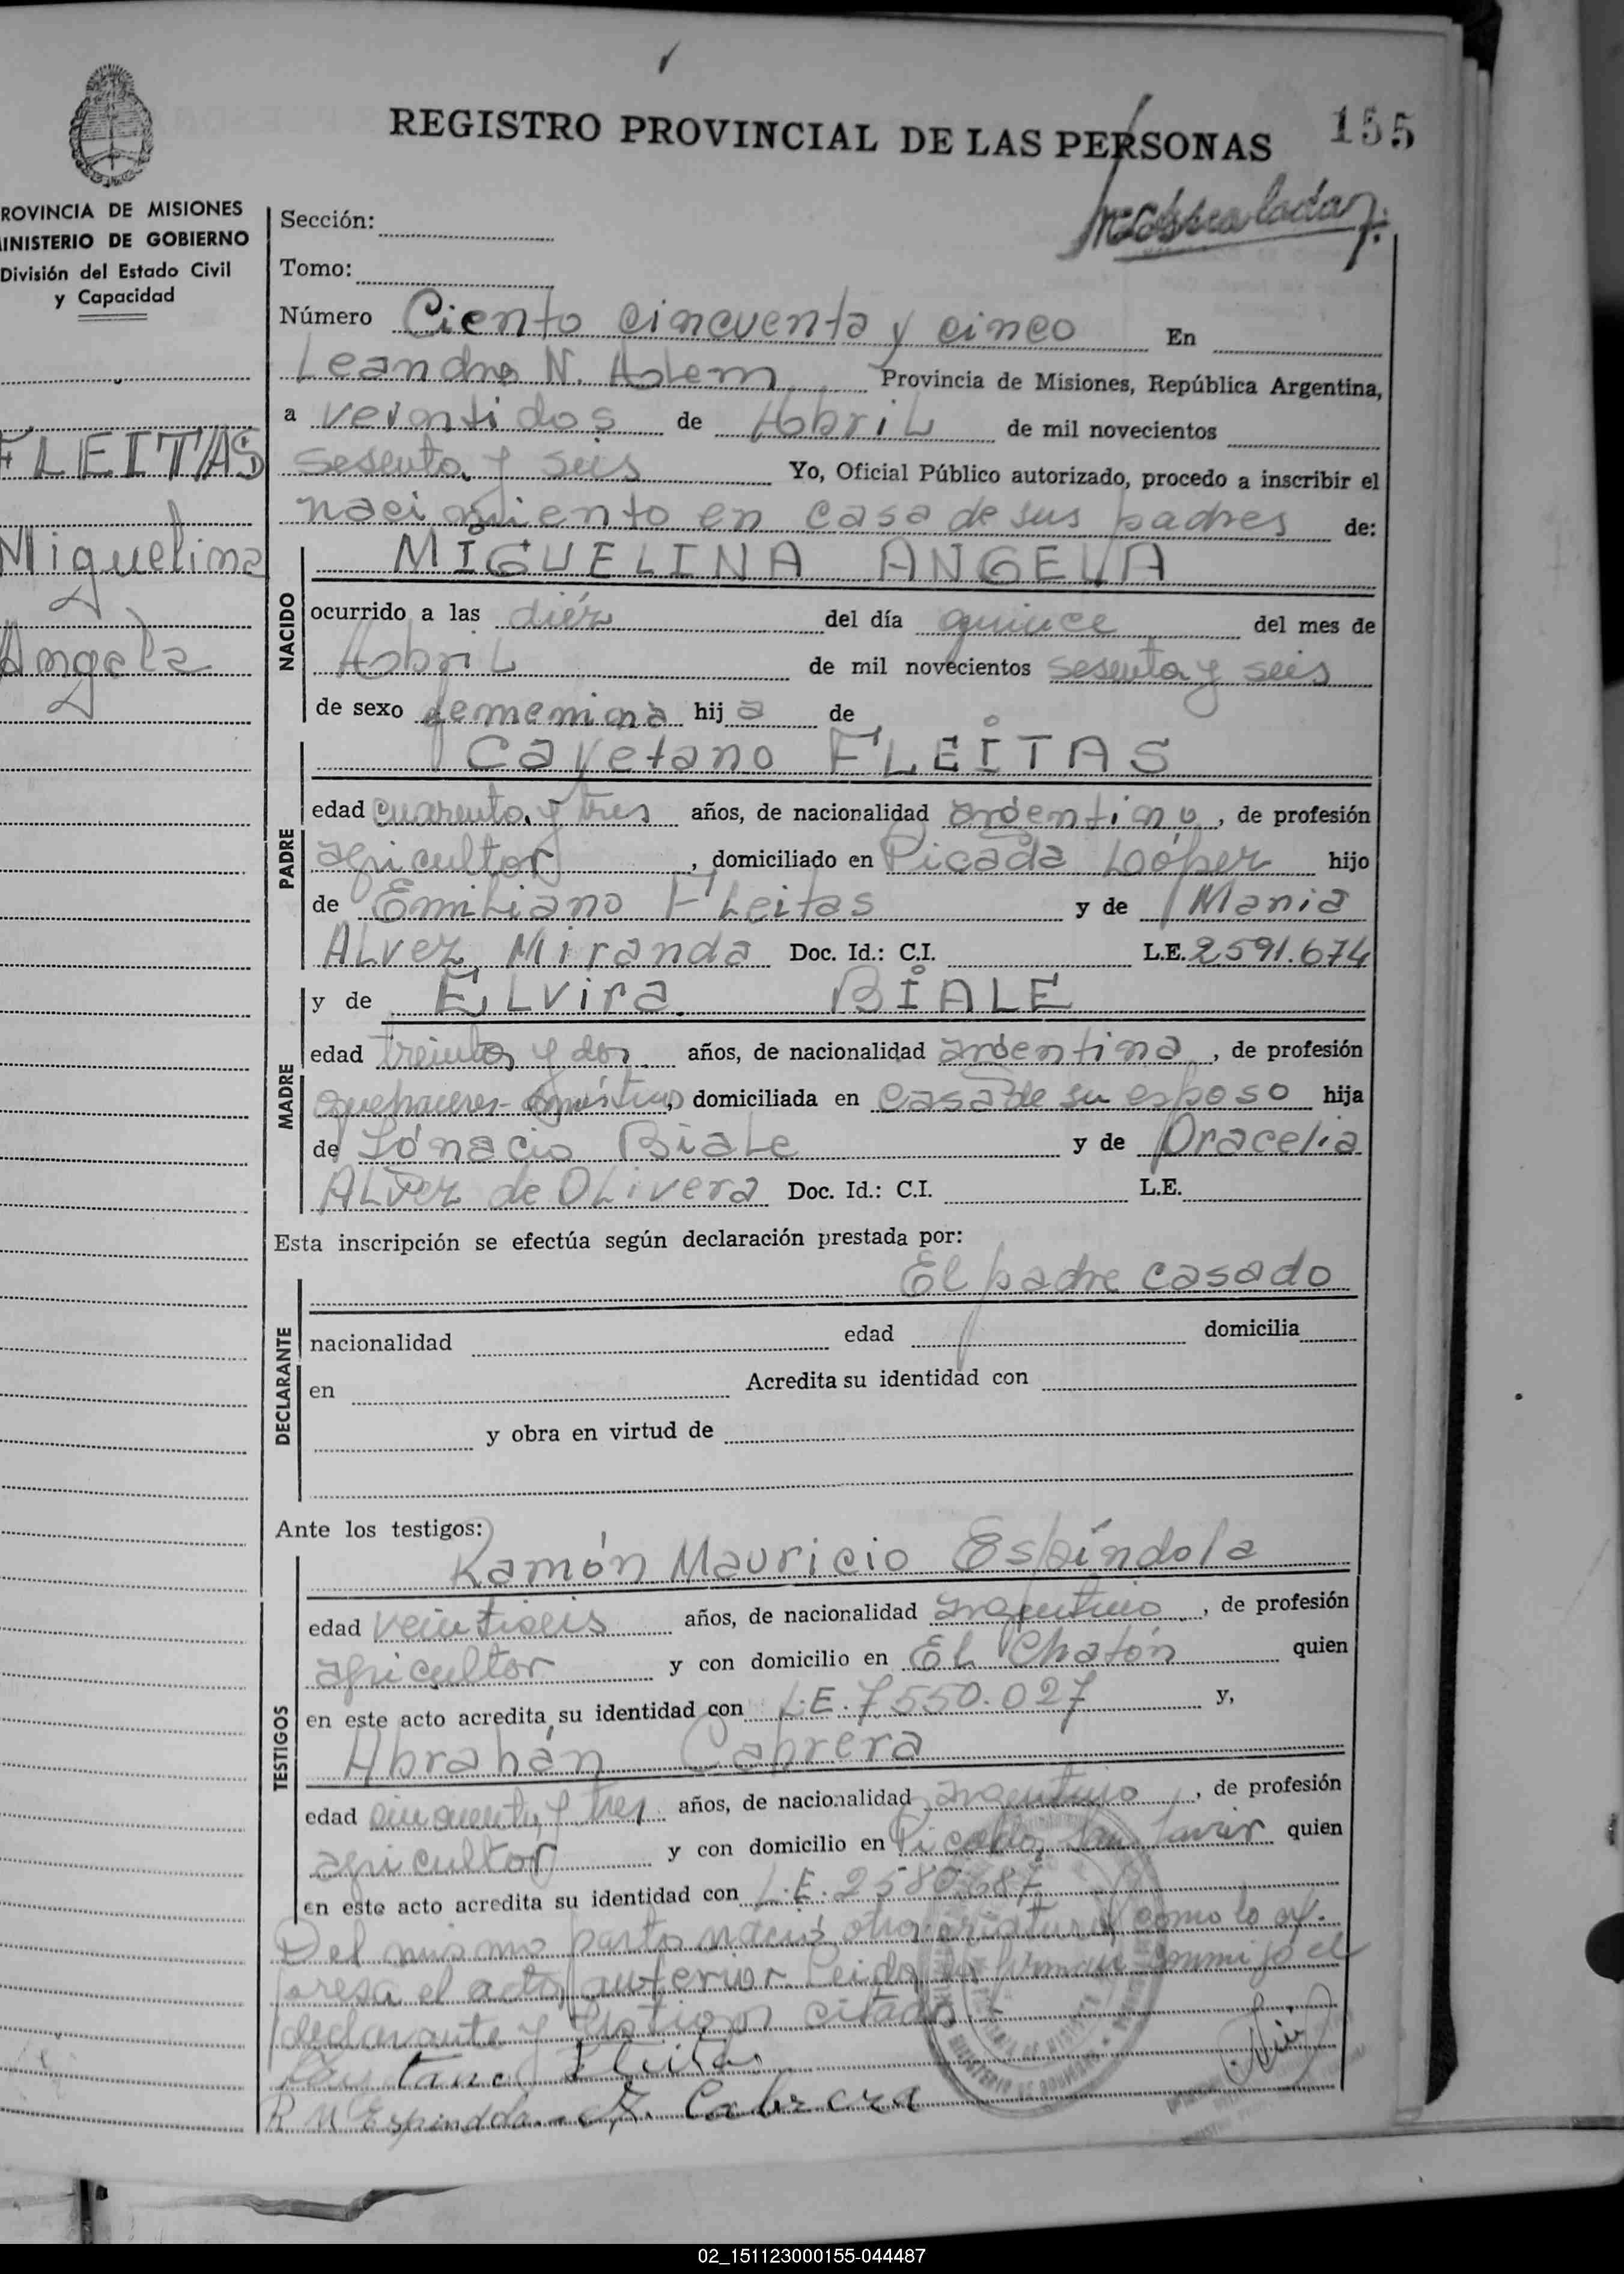 REGISTRO PROVINCIAL DE LAS PERSONAS 155
ROVINCIA DE MISIONES
INISTERIO DE GOBIERNO
División del Estado Civil
y Capacidad
FLEITAS
Miguelina
Angela
Sección:
Tomo:
Número Ciento cincuenta y cinco En
Leandro N. Alem Provincia de Misiones, República Argentina,
a veintidos de Abril de mil novecientos
sesenta y seis Yo, Oficial Público autorizado, procedo a inscribir el
nacimiento en casa de sus padres de:
NACIDO
MIGUELINA ANGELA
ocurrido a las diéz del día quince del mes de
Abril de mil novecientos sesenta y seis
de sexo femenina hija de
PADRE
Cayetano FLEITAS
edad cuarenta y tres años, de nacionalidad argentino, de profesión
agricultor, domiciliado en Picada López hijo
de Emiliano Fleitas y de Maria
Alvez Miranda Doc. Id.: C.I. L.E. 2591.674
MADRE
y de Elvira BIALE
edad treinta y dos años, de nacionalidad argentina, de profesión
quehaceres-domésticos, domiciliada en casa de su esposo hija
de Ignacio Biale y de Oracelia
Alvez de Olivera Doc. Id.: C.I. L.E.
Esta inscripción se efectúa según declaración prestada por:
DECLARANTE
El padre casado
nacionalidad edad domicilia
en Acredita su identidad con
y obra en virtud de
Ante los testigos:
TESTIGOS
Ramón Mauricio Espíndola
edad veintiseis años, de nacionalidad argentino, de profesión
agricultor y con domicilio en El Chatón quien
en este acto acredita su identidad con L.E. 7.550.027 y,
Abrahán Cabrera
edad cincuenta y tres años, de nacionalidad argentino, de profesión
agricultor y con domicilio en Picada San Javier quien
en este acto acredita su identidad con L.E. 2580.687
Del mismo parto nació otra criatura como lo ex-
presa el acta anterior Leida la firman conmigo el
declarante y testigos citados
Cayetano Fleitas
R M Espindola A. Cabrera
02_151123000155-044487